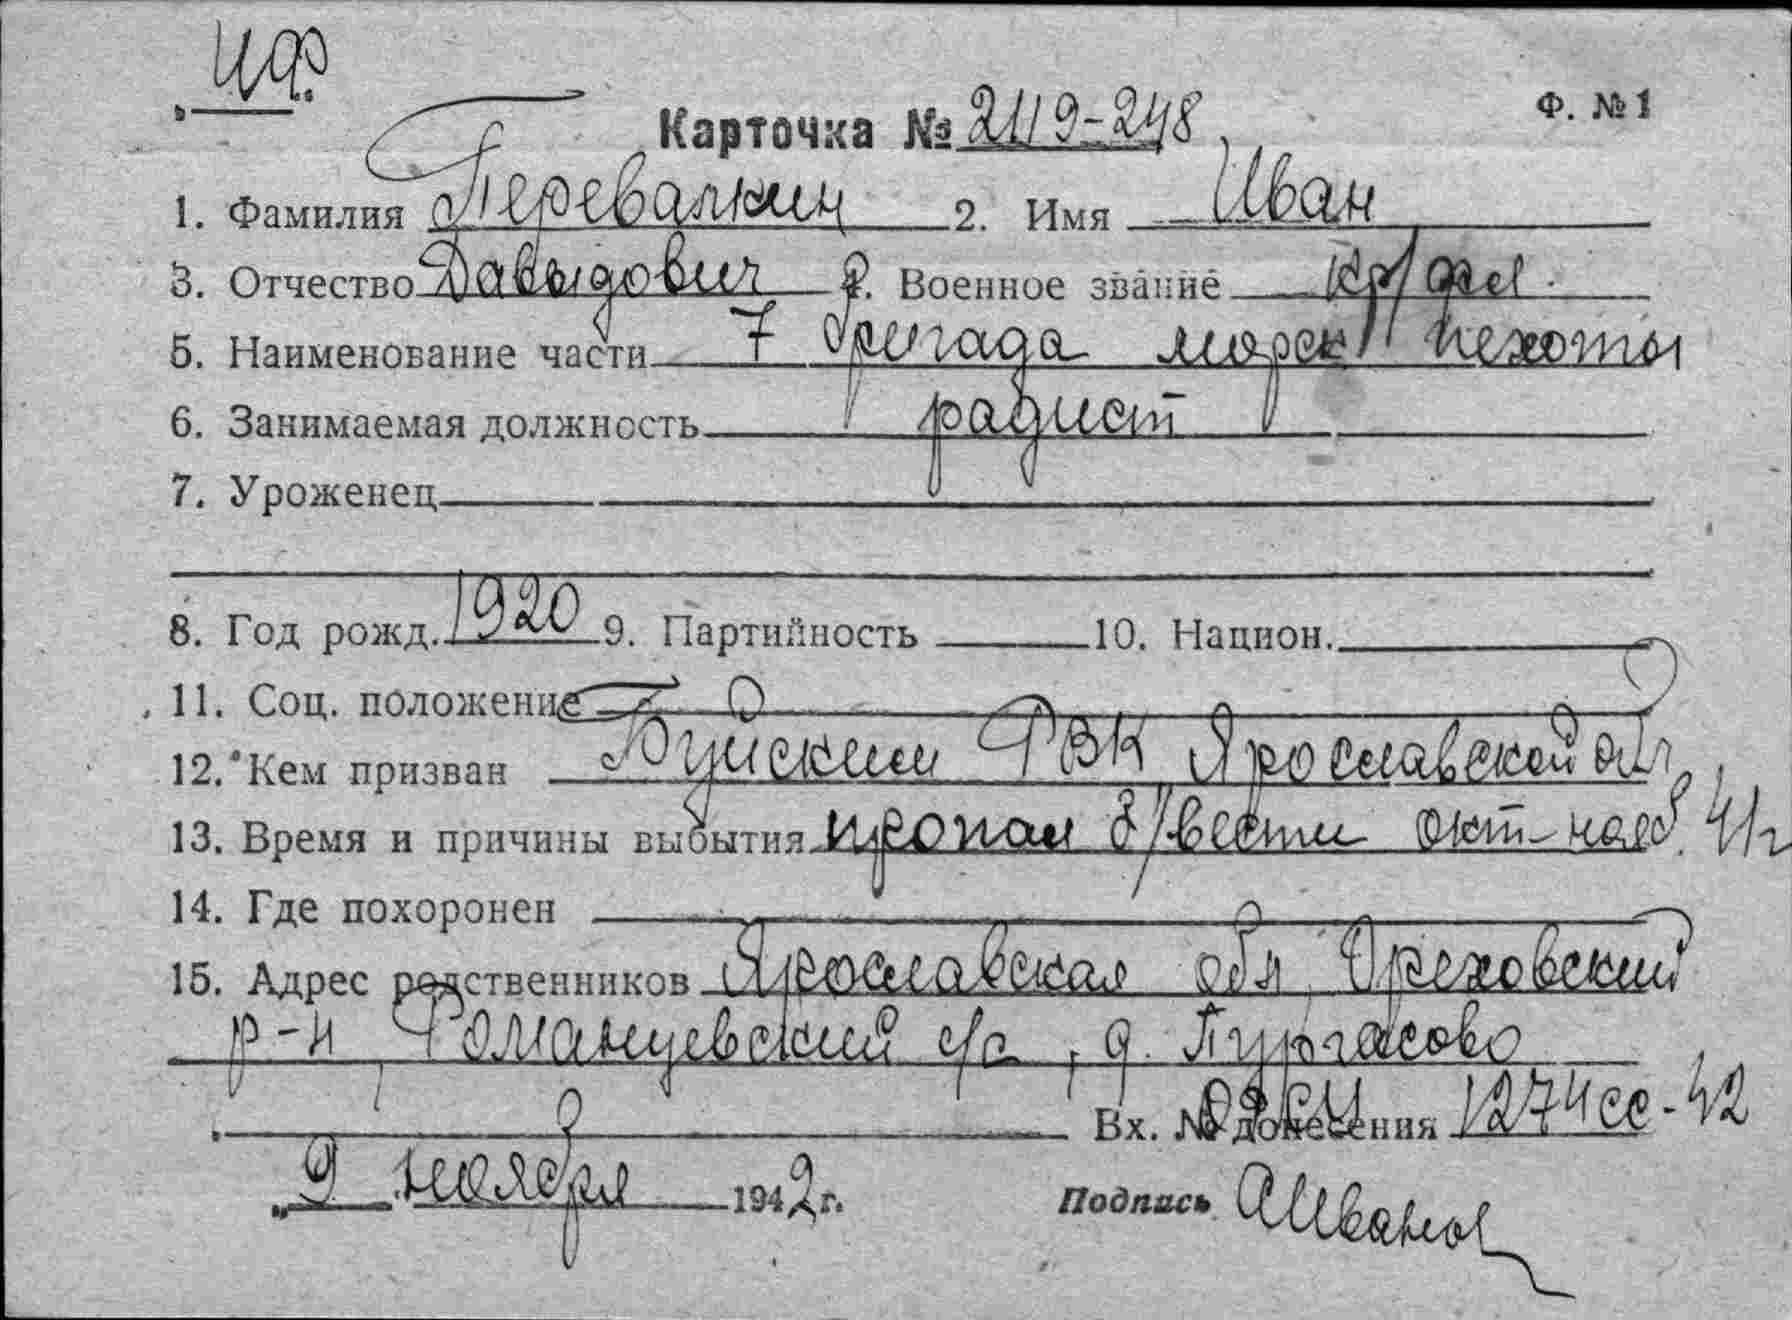 ЦФ.
Ф. №1
Карточка № 2119-248
1. Фамилия Перевалкин 2. Имя Иван
3. Отчество Давыдович 4. Военное звание кр/фл.
5. Наименование части 7 бригада морск пехоты
6. Занимаемая должность радист
7. Уроженец
8. Год рожд. 1920 9. Партийность 10. Национ.
11. Соц. положение
12. Кем призван Буйским РВК Ярославской обл.
13. Время и причины выбытия пропал б/вести окт-нояб. 41г
14. Где похоронен
15. Адрес родственников Ярославская обл. Ореховский
р-н, Романцевский с/с, д. Пургасово
Вх. № донесения 1274сс-42
„9 ноября 1942 г. Подпись АИванов